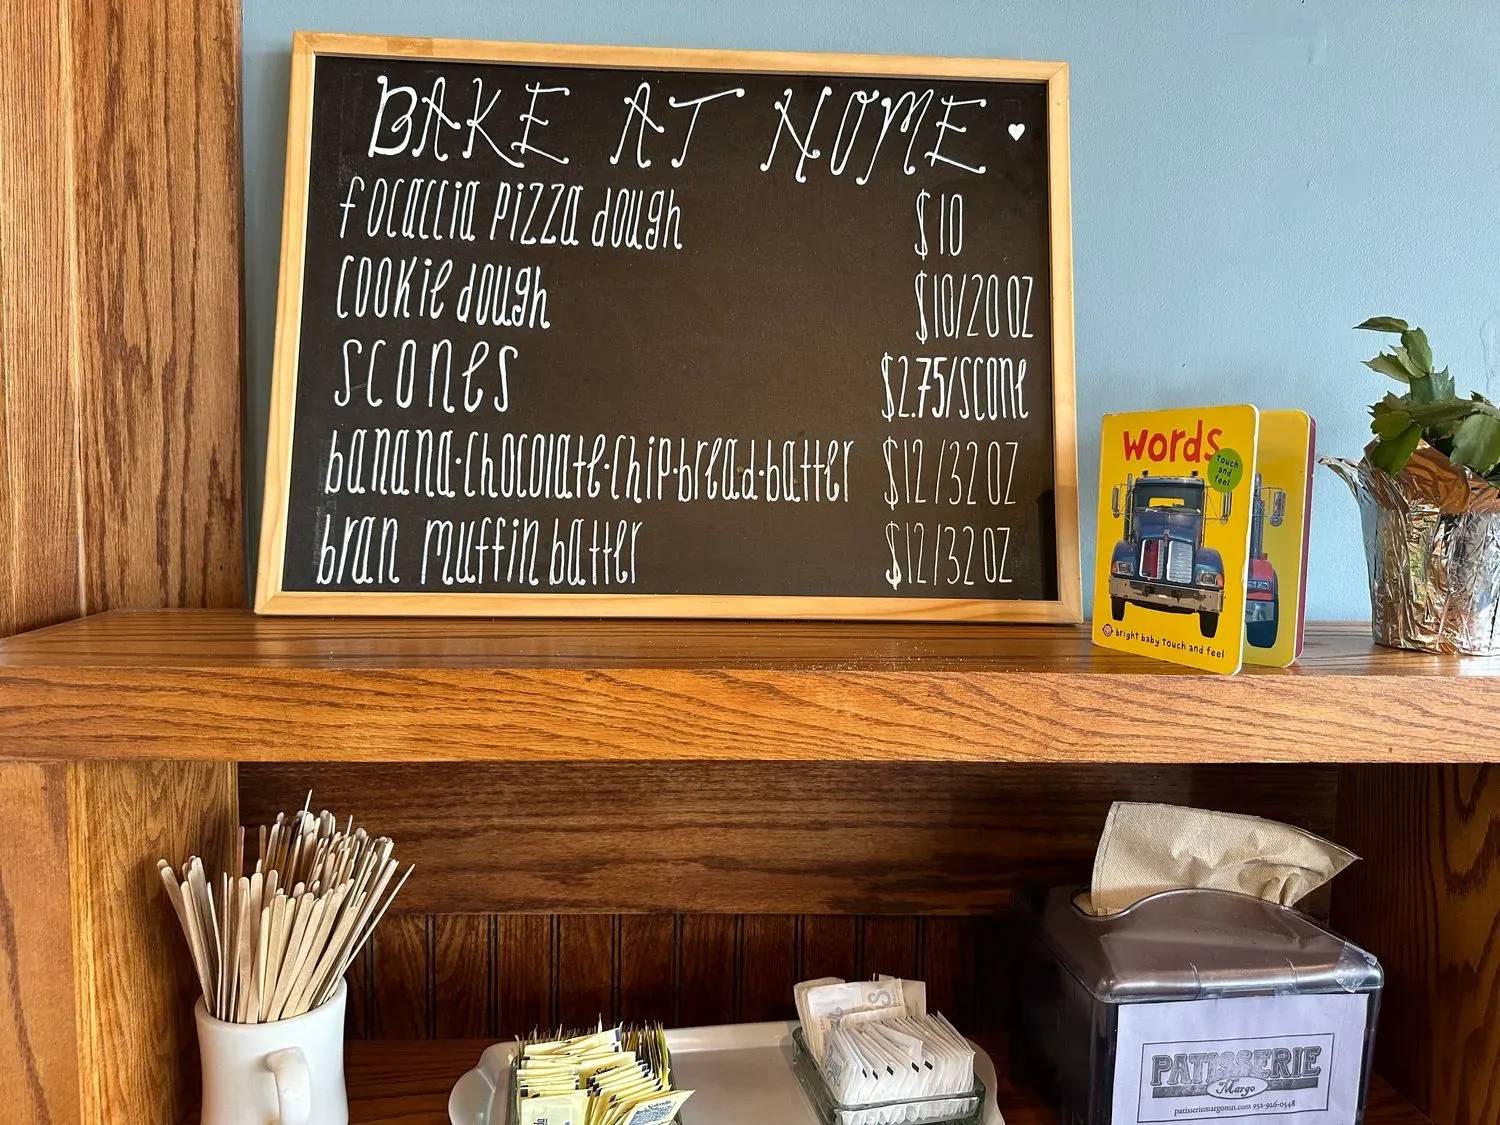 BAKE AT HOME
focaccia pizza dough $10
cookie dough $10/20 oz
scones $2.75/scone
banana·chocolate·chip·bread·batter $12/32 oz
bran muffin batter $12/32 oz
words
touch
and
feel
bright baby touch and feel
PATISSERIE
Margo
patisseriemargomn.com 952-926-0548